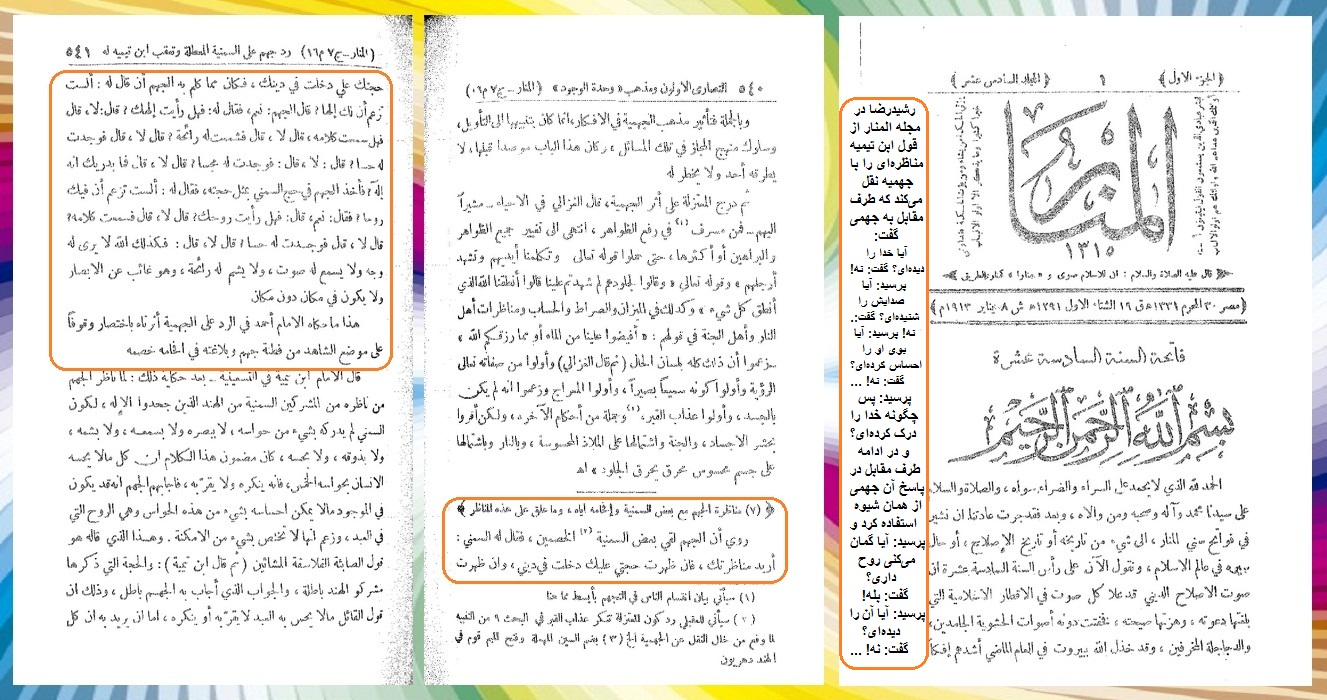 ﴿الجزء الاول﴾ ١ ﴿المجلد السادس عشر﴾
المنار
١٣١٥
﴿قال عليه الصلاة والسلام : ان للاسلام صوى و « منارا » كمنار الطريق﴾
﴿مصر ٣٠ المحرم ١٣٣١ هـ ق ١٩ الشتاء الاول ١٢٩١ هـ ش ٨ يناير ١٩١٣ م﴾
فاتحة السنة السادسة عشرة
بسم الله الرحمن الرحيم
الحمد لله الذي لا يحمد على السراء والضراء سواه ، والصلاة والسلام
على سيدنا محمد وآله وصحبه ومن والاه ، وبعد فقد جرت عادتنا ان نشير
في فواتح سني المنار ، الى شيء من تاريخه أو تاريخ الإصلاح ، أو حال
سيره في عالم الاسلام ، ونقول الآن على رأس السنة السادسة عشرة ان
صوت الاصلاح الديني قد علا كل صوت في الاقطار الاسلامية التي
بلغتها دعوته ، وهزتها صيحته ، فخفتت دونه أصوات الحشوية الجامدين،
والدجاجلة المخرفين ، وقد خذل الله ببيروت في العام الماضي أشدهم إفكا
رشیدرضا در
مجله المنار از
قول ابن تیمیه
مناظره‌ای را با
جهمیه نقل
می‌کند که طرف
مقابل به جهمی
گفت:
آیا خدا را
دیده‌ای؟ گفت: نه!
پرسید: آیا
صدایش را
شنیده‌ای؟ گفت:.
نه! پرسید: آیا
بوی او را
احساس کرده‌ای؟
گفت: نه! ...
پرسید: پس
چگونه خدا را
درک کرده‌ای؟
و در ادامه
طرف مقابل در
پاسخ آن جهمی
از همان شیوه
استفاده کرد و
پرسید: آیا گمان
می‌کنی روح
داری؟
گفت: بله!
پرسید: آیا آن را
دیده‌ای؟
گفت: نه! ...
٥٤٠ النصارى الاولون ومذهب « وحدة الوجود » (المنار ــ ج ٧ م ١٦)
وبالجملة فتأثير مذهب الجهمية في الافكار، انما كان بتنبيهها الى التأويل،
وسلوك منهج المجاز في تلك المسائل ، وكان هذا الباب موصدا قبلها ، لا
يطرقه أحد ولا يخطر له
ثم درج المعتزلة على أثر الجهمية، قال الغزالي في الاحياء ــ مشيراً
اليهم ــ فمن مسرف (١) في رفع الظواهر ، انتهى الى تغيير جميع الظواهر
والبراهين أو أكثرها ، حتى حملوا قوله تعالى وتكلمنا أيديهم وتشهد
أرجلهم » وقوله تعالى « وقالوا لجلودهم لم شهدتم علينا قالوا أنطقنا الله الذي
أنطق كل شيء » وكذلك في الميزان والصراط والحساب ومناظرات أهل
النار وأهل الجنة في قولهم : « أفيضوا علينا من الماء أو مما رزقكم الله »
ــ زعموا أن ذلك كله بلسان الحال (ثم قال الغزالي) وأولوا من صفاته تعالى
الرؤية وأولوا كونه سميعاً بصيراً ، وأولوا المعراج وزعموا انه لم يكن
بالجسد ، وأولوا عذاب القبر، (٢) وجملة من أحكام الآخرة ، ولكن أقروا
بحشر الاجساد ، والجنة واشتمالها على الملاذ المحسوسة ، وبالنار واشتمالها
على جسم محسوس محرق يحرق الجلود » اهـ
﴿ (٧) مناظرة الجهم مع بعض السمنية وإفحامه اياه ، وما علق على هذه المناظرة ﴾
روي أن الجهم لقي بعض السمنية (٣) الخصمين ، فقال له السمني :
أريد مناظرتك ، فان ظهرت حجتي عليك دخلت في ديني ، وان ظهرت
(١) سيأتي بيان انقسام الناس في التجهم بأبسط مما هنا
(٢) سيأتي للمقبلي رد كون المعتزلة تنكر عذاب القبر في البحث ٩ من التنبيه
لما وقع من خلل النقل عن الجهمية الخ (٣) بضم السين المهملة وفتح الميم قوم في
الهند دهريون
(المنار ــ ج ٧ م ١٦) رد جهم على السمنية المعطلة وتعقب ابن تيميه له ٥٤١
حجتك علي دخلت في دينك ، فكان مما كلم به الجهم أن قال له : ألست
تزعم أن لك إلها؟ قال الجهم: نعم، فقال له: فهل رأيت إلهك؟ قال: لا، قال
فهل سمعت كلامه، قال لا ، قال فشممت له رائحة؟ قال لا ، قال فوجدت
له حسا؟ قال : لا ، قال : فوجدت له مجسا؟ قال لا ، قال فما يدريك انه
إله؟ فأخذ الجهم في حجج السمني بمثل حجته، فقال له : ألست تزعم أن فيك
روحا؟ فقال: نعم، قال: فهل رأيت روحك؟ قال لا، قال فسمعت كلامه؟
قال لا ، قال فوجدت له حسا؟ قال لا، قال : فكذلك الله لا يرى له
وجه ولا يسمع له صوت ، ولا يشم له رائحة ، وهو غائب عن الابصار
ولا يكون في مكان دون مكان
هذا ما حكاه الامام أحمد في الرد على الجهمية أثرناه باختصار وقوفاً
على موضع الشاهد من فطنة جهم وبلاغته في افحامه خصمه
قال الامام ابن تيمية في التسعينية ــ بعد حكاية ذلك : لما ناظر الجهم
من ناظره من المشركين السمنية من الهند الذين جحدوا الإله ، لكون
السمني لم يدركه بشيء من حواسه ، لا يبصره ولا بسمعه ، ولا بشمه ،
ولا بذوقه ، ولا بحسه ، كان مضمون هذا الكلام ان كل ما لا يحسه
الانسان بحواسه الخمس، فانه ينكره ولا يقر به ، فاجابهم الجهم انه قد يكون
في الموجود مالا يمكن احساسه بشيء من هذه الحواس وهي الروح التي
في العبد ، وزعم انها لا تختص بشيء من الامكنة . وهذا الذي قاله هو
قول الصابئة الفلاسفة المشائين ( ثم قال ابن تيمية ) : والحجة التي ذكرها
مشركو الهند باطلة ، والجواب الذي أجاب به الجهم باطل ، وذلك ان
قول القائل مالا يحس به العبد لا يقر به أو ينكره ، اما ان يريد به ان كل